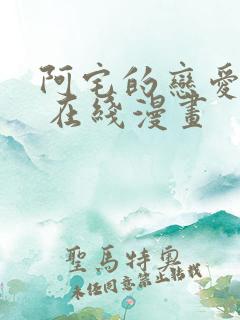 阿宅的戀愛
在綫漫畫
聖馬特奧
未经同意禁止转载